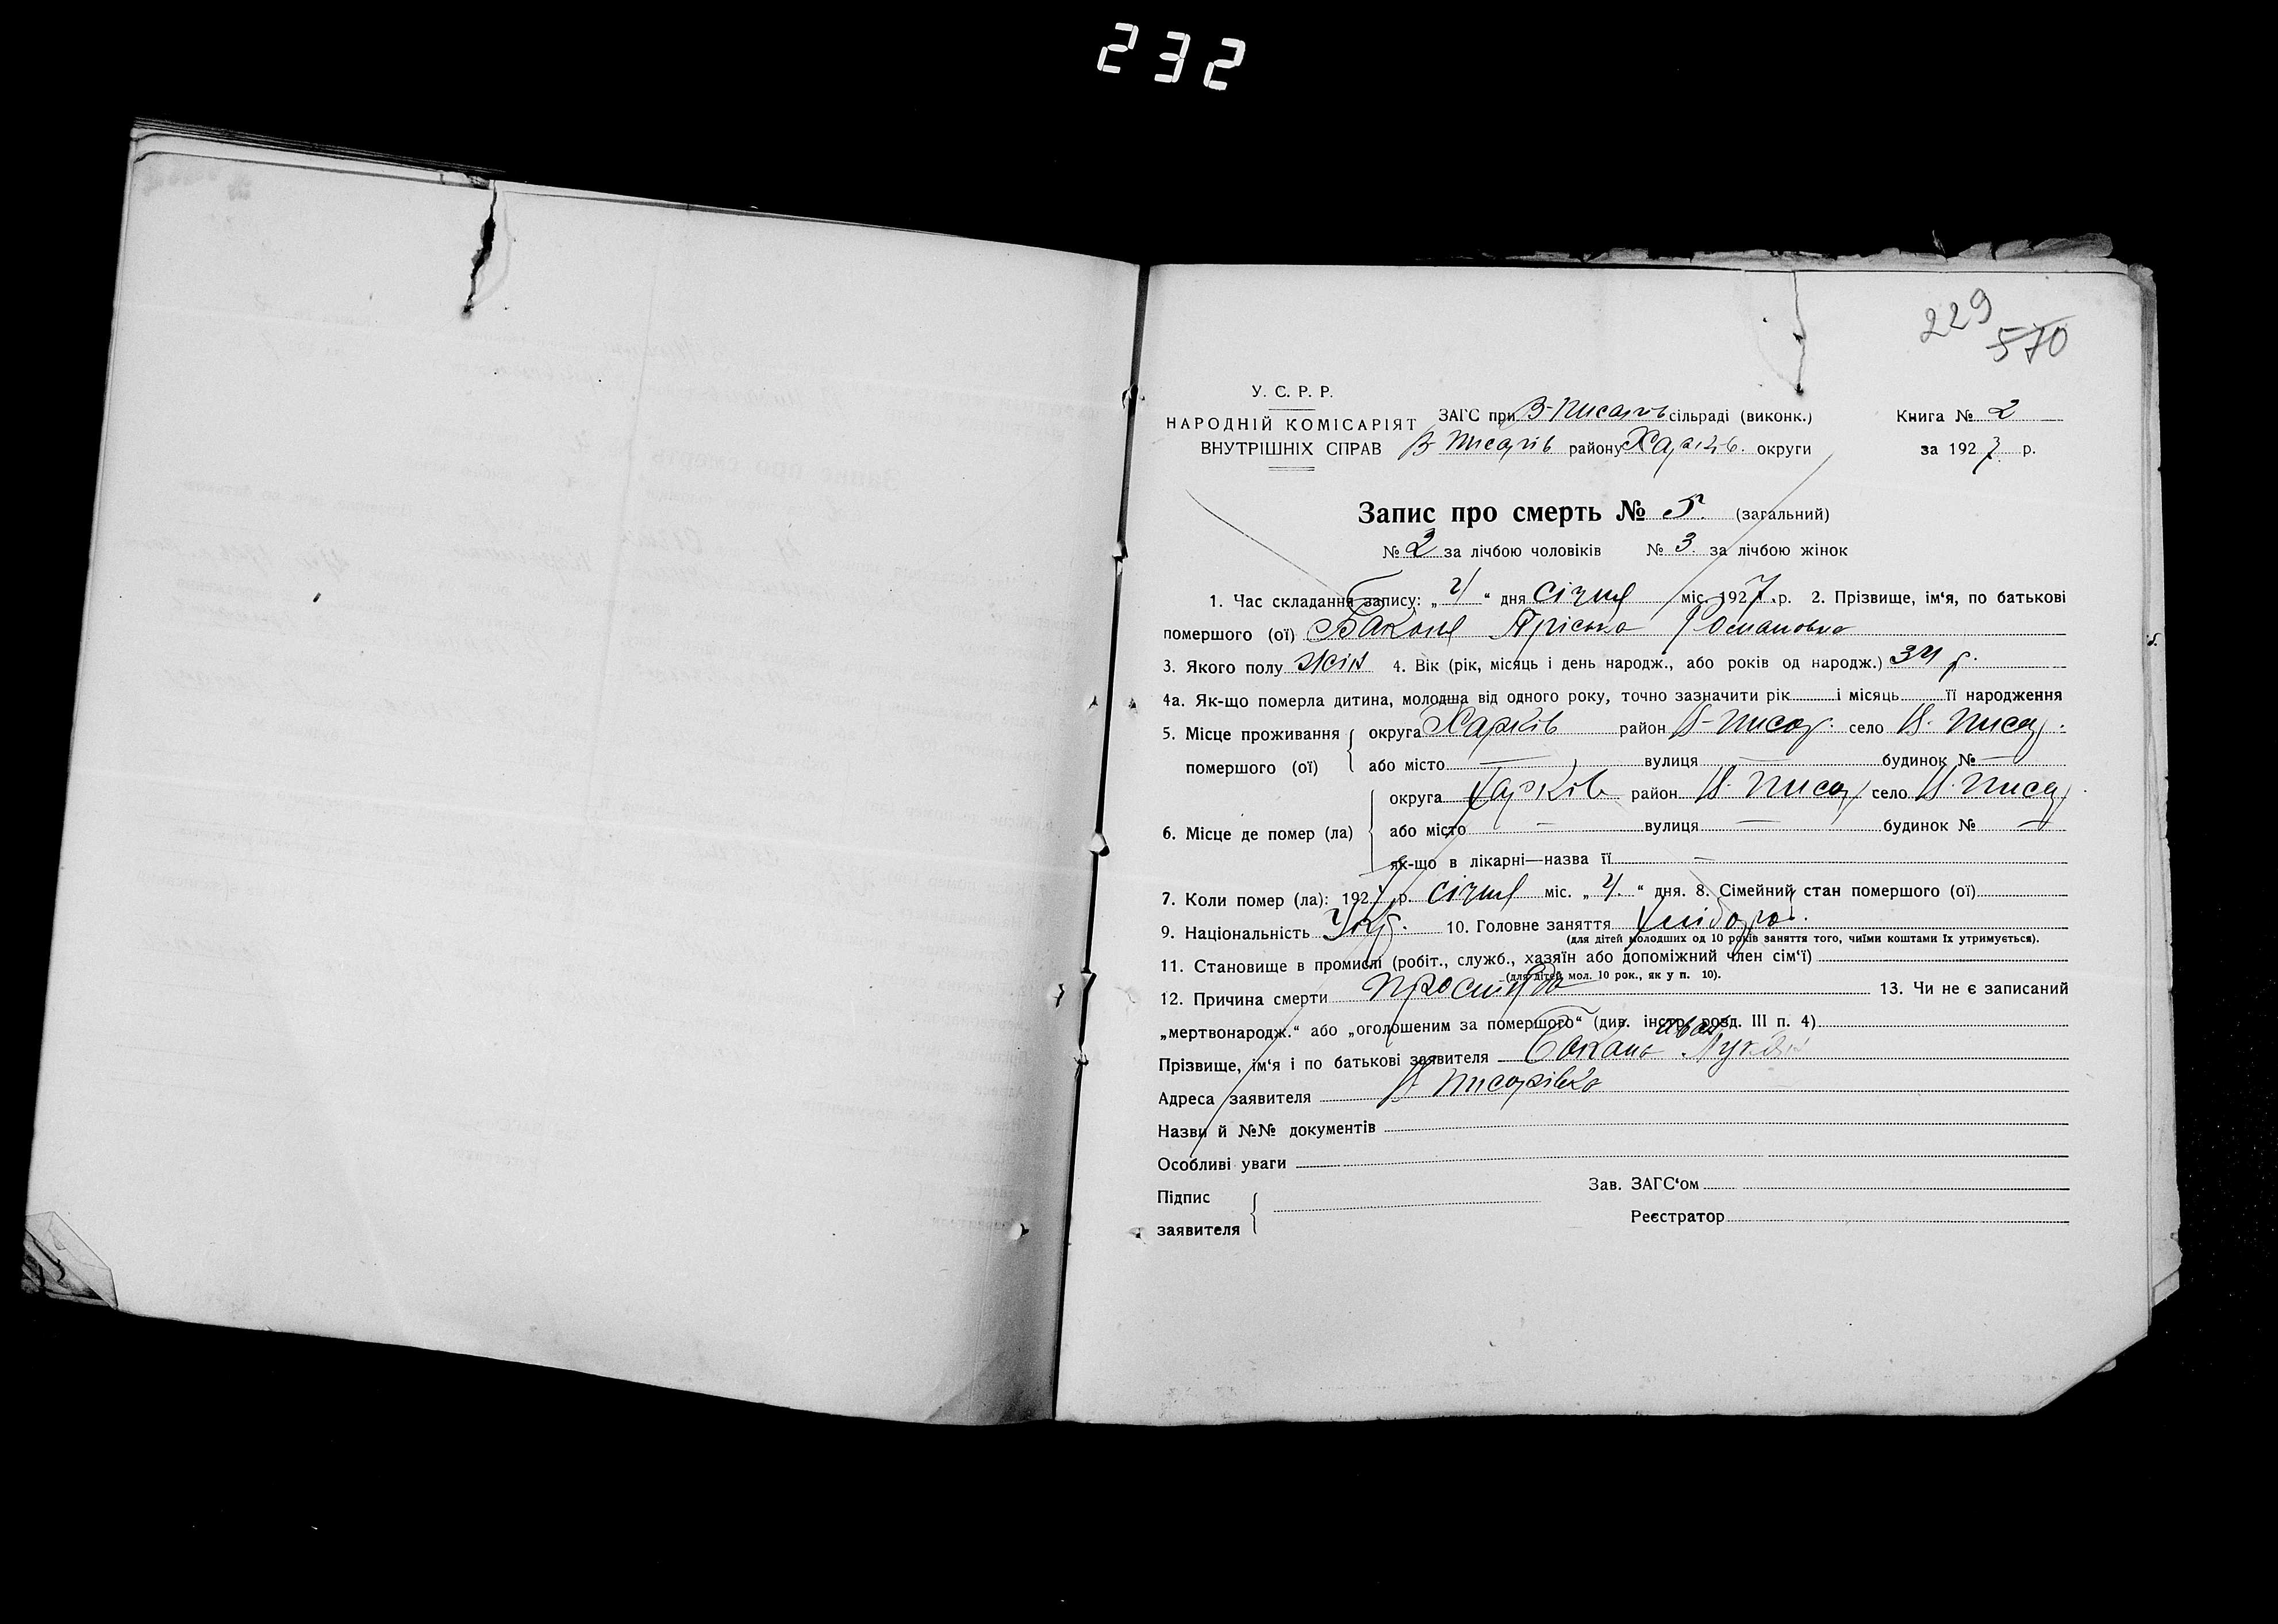 232
229
570
У. С. Р. Р.
НАРОДНІЙ КОМІСАРІЯТ
ВНУТРІШНІХ СПРАВ
ЗАГС при В-Писарів сільраді (виконк.)
В Писарів району Харків. округи
Книга № 2
за 1927 р.
Запис про смерть № 5. (загальний)
№ 2 за лічбою чоловіків № 3 за лічбою жінок
1. Час складання запису: „ 4 “ дня січня міс. 1927 р. 2. Прізвище, ім‘я, по батькові
помершого (ої) Баконя Пріська Романовна
3. Якого полу жін 4. Вік (рік, місяць і день народж., або років од народж.) 34 р.
4а. Як-що померла дитина, молодша від одного року, точно зазначити рік і місяць її народження
5. Місце проживання помершого (ої)
округа Харків район В-Писар. село В. Писар.
або місто — вулиця — будинок № —
6. Місце де помер (ла)
округа Харків район В. Писар село В. Писар
або місто — вулиця — будинок № —
як-що в лікарні—назва її —
7. Коли помер (ла): 1927 р. січня міс. „ 4. “ дня. 8. Сімейний стан помершого (ої)
9. Національність Укр. 10. Головне заняття хлібороб.
(для дітей молодших од 10 років заняття того, чиїми коштами їх утримується).
11. Становище в промислі (робіт., служб., хазяїн або допоміжний член сім‘ї)
(для дітей мол. 10 рок., як у п. 10).
12. Причина смерти простуда 13. Чи не є записаний
„мертвонародж.“ або „оголошеним за помершого“ (див. інстр. розд. III п. 4)
Прізвище, ім‘я і по батькові заявителя Бакань Лукян
Адреса заявителя В Писарівка
Назви й №№ документів
Особливі уваги
Підпис
заявителя
Зав. ЗАГС‘ом
Реєстратор